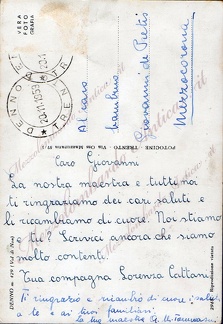 VERA
FOTO
GRAFIA
DENNO
TRENTO
20.11.1959
Al caro
bambino
Giovanni de Pretis
Mezzocorona
FOTOCINE TRENTO - Via Oss Mazzurana
Caro Giovanni
La nostra maestra e tutti noi
ti ringraziamo dei cari saluti e
li ricambiamo di cuore. Noi stiamo
e tu? Scrivici ancora che siamo
molto contenti.
Tua compagna Lorenza Cattani
Ti ringrazio e ricambio di cuore i saluti
a te e ai tuoi familiari
La tua maestra
DENNO
Riproduzione vietata